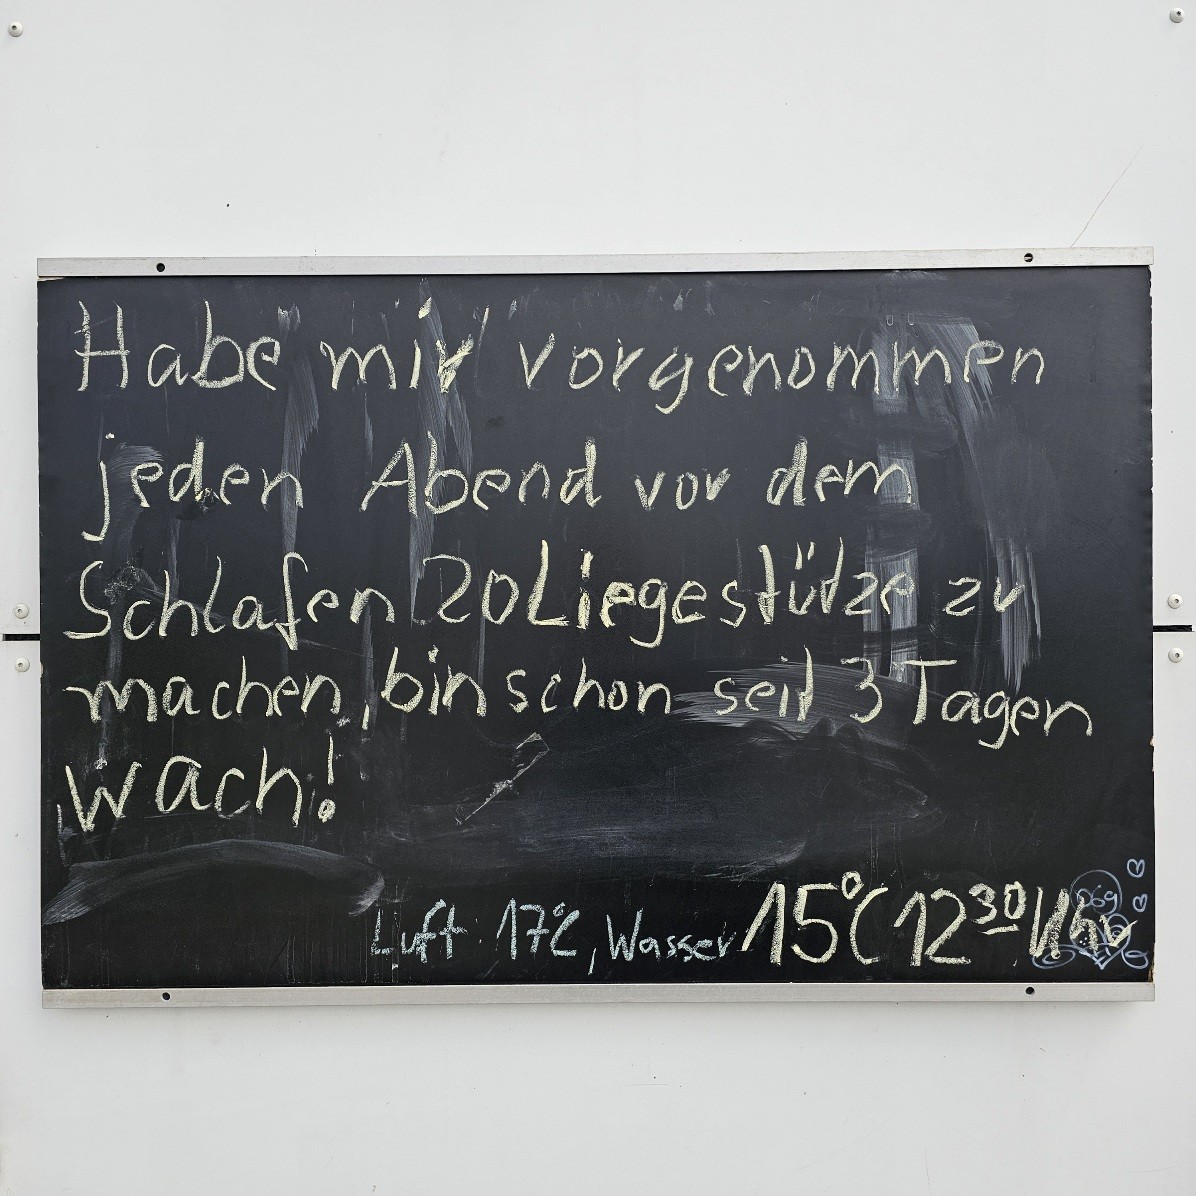 Habe mir vorgenommen
jeden Abend vor dem
Schlafen 20 Liegestütze zu
machen, bin schon seit 3 Tagen
wach!
Luft: 17°C, Wasser 15°C 12³⁰ Uhr